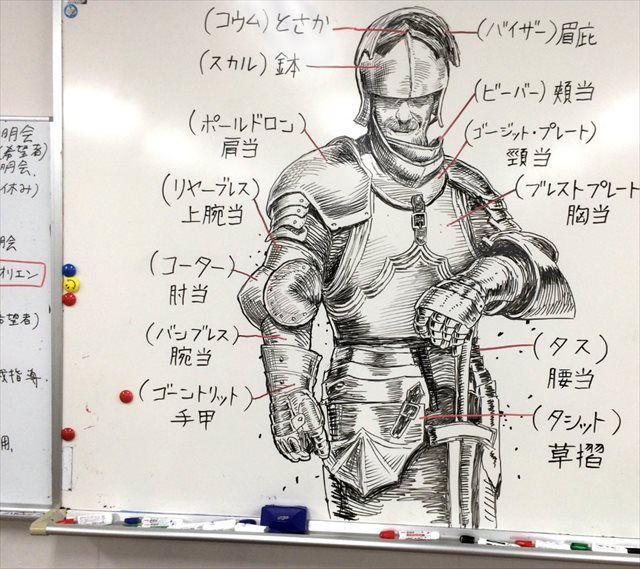 (コウム)とさか
(スカル)鉢
(バイザー)眉庇
(ビーバー)頰当
(ポールドロン)
肩当
(ゴージット・プレート)
頸当
(リヤーブレス)
上腕当
(ブレストプレート)
胸当
(コーター)
肘当
(バンブレス)
腕当
(ゴーントリット)
手甲
(タス)
腰当
(タシット)
草摺
明会
希望者)
明会、
休み)
明会
オリエン
希望者)
指導
用、